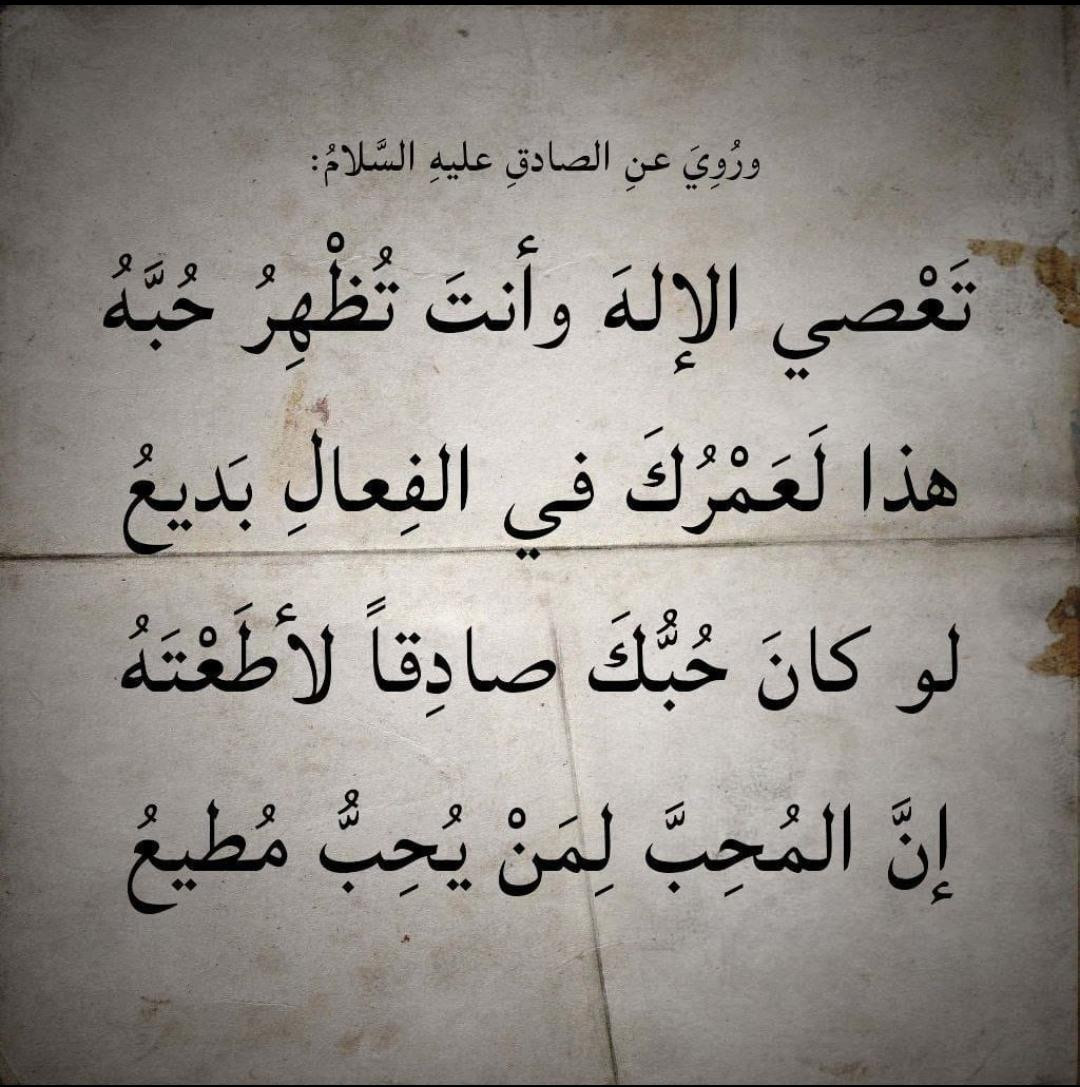 ورُوِيَ عنِ الصادقِ عليهِ السَّلامُ:
تَعْصي الإلهَ وأنتَ تُظْهِرُ حُبَّهُ
هذا لَعَمْرُكَ في الفِعالِ بَديعُ
لو كانَ حُبُّكَ صادِقاً لأطَعْتَهُ
إنَّ المُحِبَّ لِمَنْ يُحِبُّ مُطيعُ